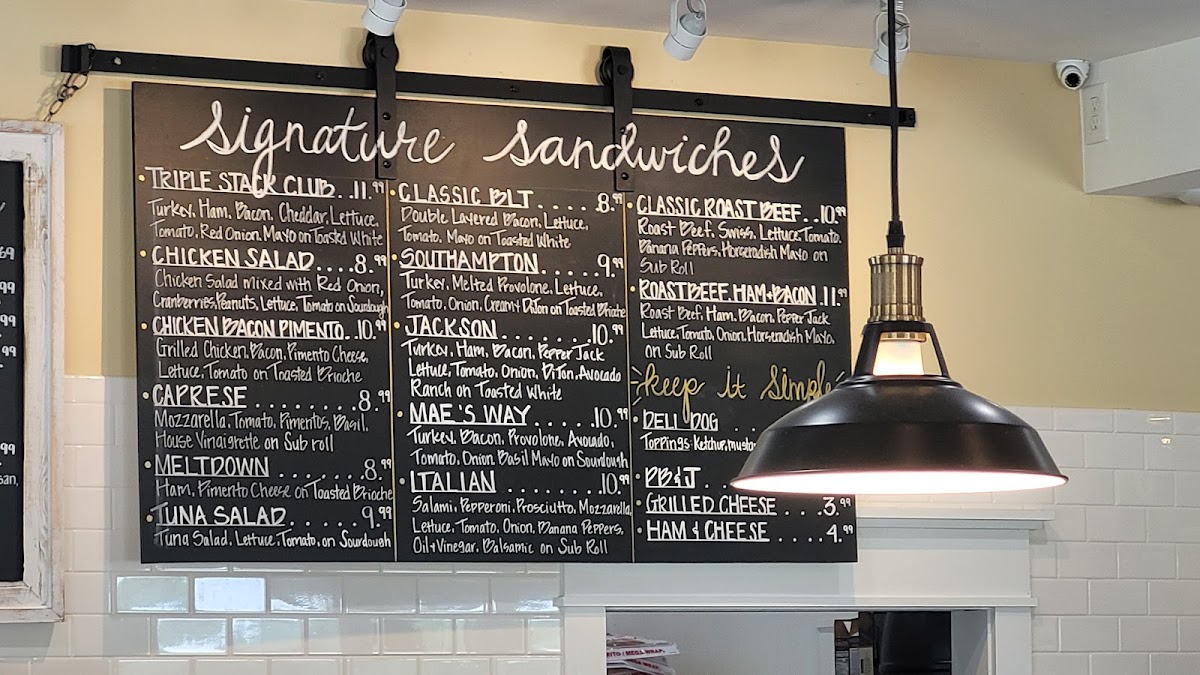 Signature Sandwiches
TRIPLE STACK CLUB..11.99
Turkey, Ham, Bacon, Cheddar, Lettuce,
Tomato, Red Onion, Mayo on Toasted White
CHICKEN SALAD....8.99
Chicken Salad mixed with Red Onion,
Cranberries, Peanuts, Lettuce, Tomato on Sourdough
CHICKEN BACON PIMENTO..10.99
Grilled Chicken, Bacon, Pimento Cheese,
Lettuce, Tomato on Toasted Brioche
CAPRESE.......8.99
Mozzarella, Tomato, Pimentos, Basil,
House Vinaigrette on Sub roll
MELTDOWN.......8.99
Ham, Pimento Cheese on Toasted Brioche
TUNA SALAD......9.99
Tuna Salad, Lettuce, Tomato, on Sourdough
CLASSIC BLT.....8.99
Double Layered Bacon, Lettuce,
Tomato, Mayo on Toasted White
SOUTHAMPTON.....9.99
Turkey, Melted Provolone, Lettuce,
Tomato, Onion, Creamy Dijon on Toasted Brioche
JACKSON........10.99
Turkey, Ham, Bacon, Pepper Jack
Lettuce, Tomato, Onion, Dijon, Avocado
Ranch on Toasted White
MAE'S WAY.....10.99
Turkey, Bacon, Provolone, Avocado,
Tomato, Onion, Basil Mayo on Sourdough
ITALIAN........10.99
Salami, Pepperoni, Prosciutto, Mozzarella,
Lettuce, Tomato, Onion, Banana Peppers,
Oil+Vinegar, Balsamic on Sub Roll
CLASSIC ROAST BEEF..10.99
Roast Beef, Swiss, Lettuce, Tomato,
Banana Peppers, Horseradish Mayo on
Sub Roll
ROAST BEEF, HAM+BACON.11.99
Roast Beef, Ham, Bacon, Pepper Jack
Lettuce, Tomato, Onion, Horseradish Mayo,
on Sub Roll
keep it Simple
DELI DOG
Toppings: Ketchup, mustard
PB&J....
GRILLED CHEESE....3.99
HAM & CHEESE.....4.99
69
99
99
99
99